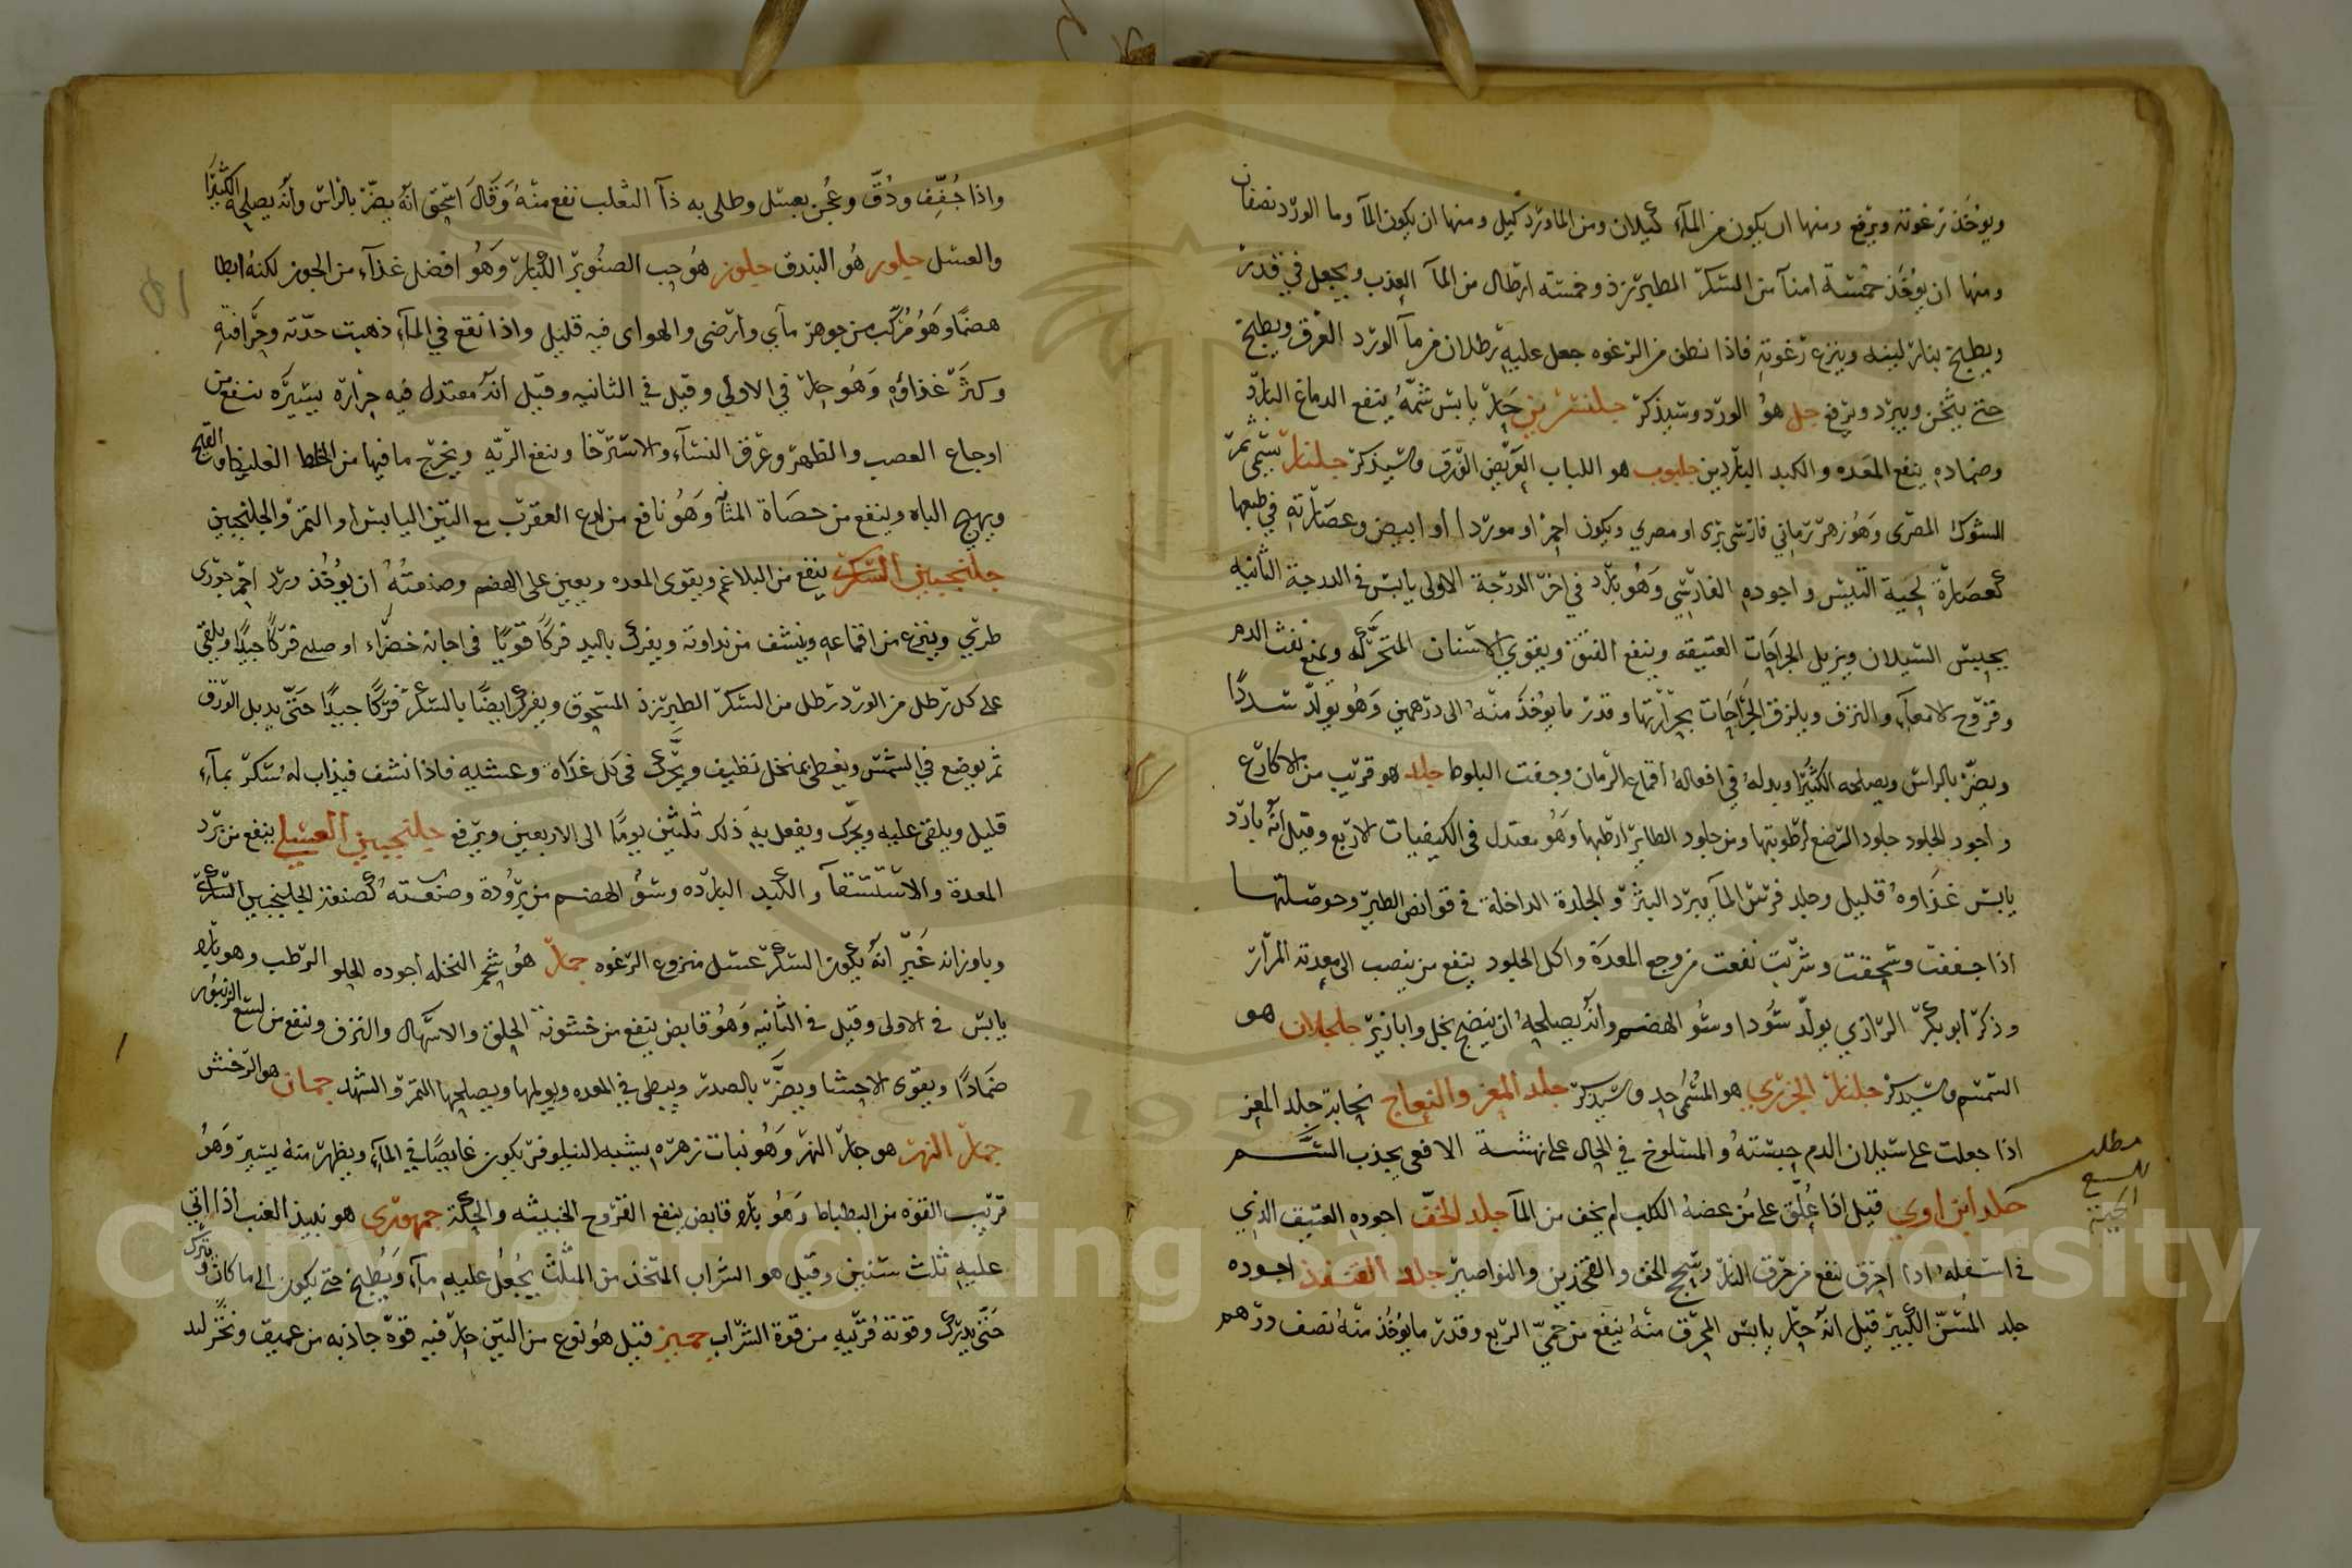 ويوخذ رغوته ويرفع ومنها ان يكون من المآء كيلان ومن الماورد كيل ومنها ان يكون المآ وما الورد نصفان
ومنها ان يوخذ خمسة امنآ من السكر الطبرزد وخمسة ارطال من المآ العذب ويجعل في قدر
ويطبخ بنار لينه وينزع رغوته فاذا نطف من الرغوه جعل عليه رطلان من مآ الورد العرق ويطبخ
حتى يثخن ويبرد ويرفع جل هو الورد وسيذكر جلنسرين حار يابس شمه ينفع الدماغ البارد
وضماده ينفع المعده والكبد الباردين جلبوب هو اللباب العريض الورق وسيذكر جلنار يسمى ثمر
الشوك المصرى وهو زهر رماني فارسى برى او مصري ويكون احمر او موردا أو ابيض وعصارته في طبعها
كعصارة لحية التيس واجوده الفارسي وهو بارد في اخر الدرجة الاولى يابس في الدرجة الثانيه
يحبس السيلان ويزيل الجراحات العتيقه وينفع الفتق ويقوي الاسنان المتحركه ويمنع نفث الدم
وقروح الامعآء والنزف ويلزق الجراحات بحرارتها وقدر ما يوخذ منه الى درهمين وهو يولد سددا
ويضر بالراس ويصلحه الكثيرا وبدله في افعاله اقماع الرمان وجفت البلوط جلد هو قريب من الاكارع
واجود الجلود جلود الرضع لرطوبتها ومن جلود الطاير ارطبها وهو معتدل في الكيفيات الاربع وقيل أنه بارد
يابس غذاوه قليل وجلد فرس المآ يبرد البثر والجلدة الداخلة في قوانص الطير وحوصلتها
اذا جففت وسحقت وشربت نفعت من وجع المعدة واكل الجلود ينفع من ينصب الى معدته المرار
وذكر ابو بكر الرازي يولد سودا وسو الهضم وأنه يصلحه ان ينضج بخل وابازير جلجلان هو
السمسم وسيذكر جلنار الجزري هو المشمى حد وسيذكر جلد المعز والنعاج نحاية جلد المعز
اذا جعلت على سيلان الدم حبسته والمسلوخ في الحال على نهشة الافعى يجذب السم
مطلب
للسع
الحية
جلد أبن اوي قيل اذا علق على من عضه الكلب لم يخف من المآ جلد الخف اجوده العتيق الذي
في اسفله اذا احرق نفع من حرق النار وسحج الخف والفخذين والنواصير جلد القنفذ اجوده
جلد المسن الكبير قيل انه حار يابس المحرق منه ينفع من حمي الربع وقدر ما يوخذ منه نصف درهم
واذا جفف ودق وعجن بعسل وطلى به دآ الثعلب نفع منه وقال اسحق انه يضر بالراس وأنه يصلحه الكثيرا
والعسل جلور هو البندق جلوز هو حب الصنوبر الكبار وهو افضل غذآء من الجوز لكنه ابطا
هضما وهو مركب من جوهر مآي وارضى والهواى فيه قليل واذا نقع في المآء ذهبت حدته وحرافته
وكثر غذاؤه وهو حار في الاولي وقيل في الثانيه وقيل انه معتدل فيه حرارة يسيره ينفع من
اوجاع العصب والظهر وعرق النسآء والاسترخا وينفع الريه ويخرج ما فيها من الخلط الغليظ والقيح
ويهيج الباه وينفع من حصاة المثانة وهو نافع من لدع العقرب مع التين اليابس او التمر والجلنجبين
جلنجبين السكري ينفع من البلاغم ويقوى المعده ويعين على الهضم وصنعته ان يوخذ ورد احمر جورى
طري وينزع من اقماعه وينشف من نداوته ويفرك باليد فركا قويا في اجانه خضراء او صلى فركا جيدا ويلقي
على كل رطل من الورد رطل من السكر الطبرزذ المسحوق ويفرك ايضا بالسكر فركا جيدا حتى يدبل الورق
ثم يوضع في الشمس ويغطى بمنخل نظيف ويحرك في كل غداه وعشيه فاذا نشف فيذاب له سكر بمآء
قليل ويلقى عليه ويحرك ويفعل به ذلك ثلثين يوما الى الاربعين ويرفع جلنجبين العسلي ينفع من برد
المعدة والاستسقآ والكبد البارده وسو الهضم من برودة وصنعته كصنعة الجلنجبين السكري
وباوزانه غير انه يكون السكر عسل منزوع الرغوه جمار هو شحم النخله اجوده الحلو الرطب وهو بارد
يابس في الاولى وقيل في الثانيه وهو قابض ينفع من خشونة الحلق والاسهال والنزف وينفع من لسع الزنبور
ضمادا ويقوى الاحشا ويضر بالصدر ويبطى في المعده ويولمها ويصلحها التمر والشهد جمان هو الرخش
جمار النهر هو جار النهر وهو نبات زهره يشبه النيلوفر يكون غايصا في المآء ويظهر منه يسير وهو
قريب القوة من البطباط وهو بارد قابض ينفع القروح الخبيثه والحكة جمهوري هو نبيذ العنب اذا اتي
عليه ثلث سنين وقيل هو الشراب المتخذ من المثلث يجعل عليه مآء ويطبخ حتى يكون الى ما كان ويترك
حتى يدرك وقوته قريبه من قوة الشراب جميز قيل هو نوع من التين حار فيه قوة جاذبه من عميق وتحلل